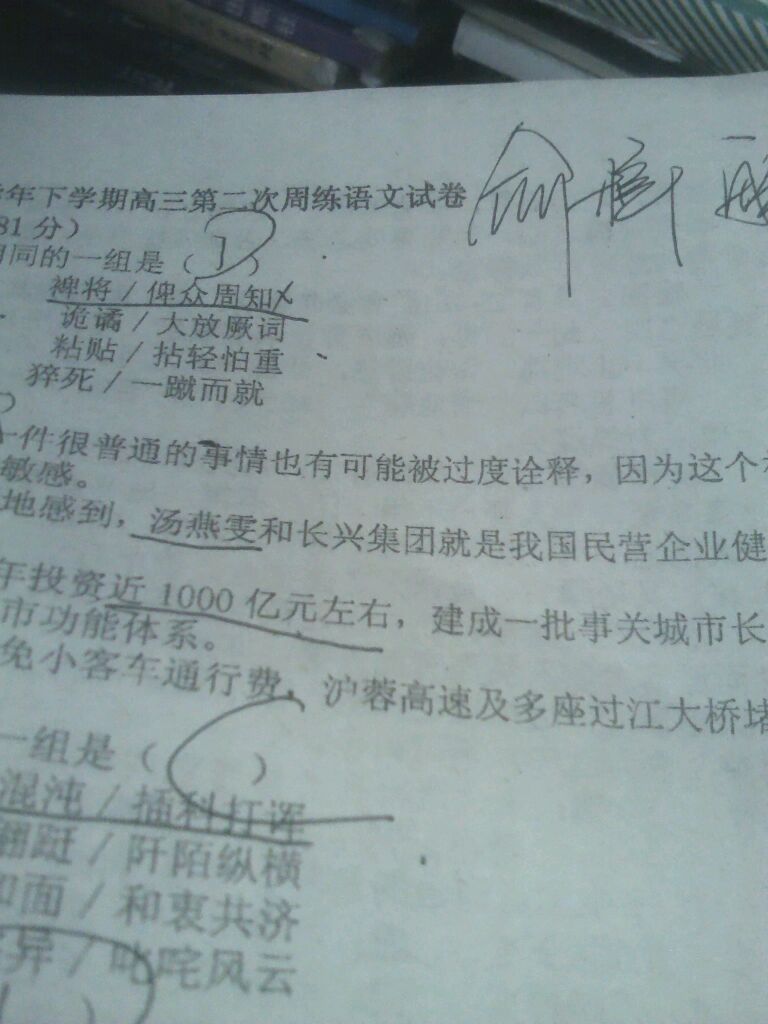 年下学期高三第二次周练语文试卷
81分）
同的一组是（ ）
裨将 / 俾众周知
诡谲 / 大放厥词
粘贴 / 拈轻怕重
猝死 / 一蹴而就
一件很普通的事情也有可能被过度诠释，因为这个
敏感。
地感到，汤燕雯和长兴集团就是我国民营企业健
年投资近 1000 亿元左右，建成一批事关城市长
市功能体系。
免小客车通行费，沪蓉高速及多座过江大桥堵
一组是（ ）
混沌 / 插科打诨
翩跹 / 阡陌纵横
和面 / 和衷共济
异 / 叱咤风云